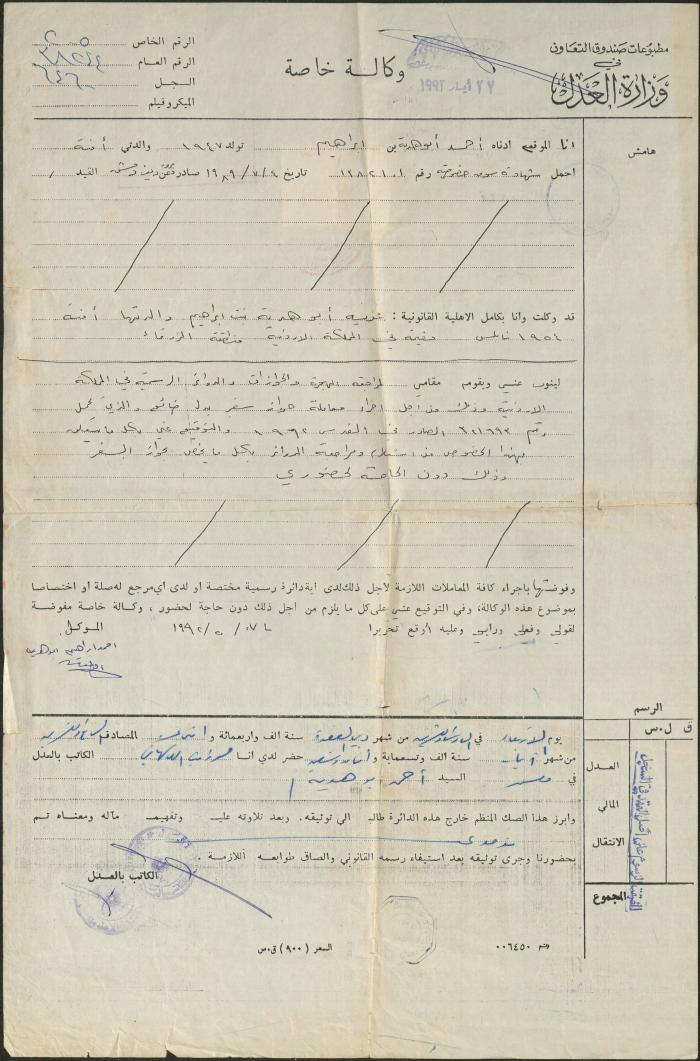 مطبوعات صندوق التعاون
في
وزارة العدل
٢٧ أيار ١٩٩٢
وكالة خاصة
الرقم الخاص ٢٠٥
الرقم العام
السجل ٦٤٦
الميكروفيلم
هامش
انا الموقع ادناه أحمد أبو هدبة بن ابراهيم تولد ١٩٤٧ والدتي آمنة
احمل شهادة سوق خصوصية رقم ١٢٨٢١٠١ تاريخ ١٩٨٩/٧/٩ صادرة عن ريف دمشق القيد /
قد وكلت وانا بكامل الاهلية القانونية : أبو هدبة بنت ابراهيم والدتها آمنة
١٩٥٤ نابلس مقيمة في المملكة الاردنية منطقة الزرقاء
لينوب عني ويقوم مقامي لمراجعة الهجرة والجوازات والدوائر الرسمية في المملكة
الاردنية وذلك من أجل اجراء معاملة جواز سفر بدل ضائع والذي يحمل
رقم ٣٠١٦٩٢ الصادر في القدس ١٩٦٢ والتوقيع عني بكل ما يتعلق
بهذا الخصوص من استلام ومراجعة الدوائر بكل ما يخص جواز السفر
وذلك دون الحاجة لحضوري
وفوضتها باجراء كافة المعاملات اللازمة لاجل ذلك لدى اية دائرة رسمية مختصة او لدى اي مرجع له صلة او اختصاصا
بموضوع هذه الوكالة، وفي التوقيع عني على كل ما يلزم من اجل ذلك دون حاجة لحضور، وكالة خاصة مفوضة
لقولي وفعلي ورأيي وعليه أوقع تحريرا ٢٧ / ٥ / ١٩٩٢ الموكل
احمد ابراهيم ابو هدبه
الرسم
ق ل.س
العدل
المالي
الانتقال
المجموع
يوم الاربعاء في الرابع والعشرين من شهر ذي القعدة سنة الف واربعمائة و اثني عشر المصادف السابع والعشرين
من شهر أيار سنة الف وتسعماية و اثنان وتسعين حضر لدي انا الكاتب بالعدل
في السيد أحمد أبو هدبة
وابرز هذا الصك المنظم خارج هذه الدائرة طالبا الي توثيقه. وبعد تلاوته عليه وتفهيمه مآله ومعناه تم
بحضورنا وجرى توثيقه بعد استيفاء رسمه القانوني والصاق طوابعه اللازمة.
الكاتب بالعدل
السعر (٩٠٠) ق.س
رقم ٠٠٦٤٥٠